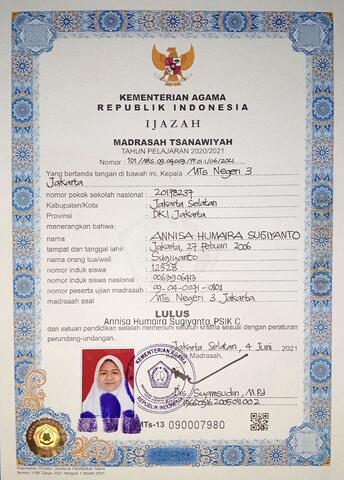 KEMENTERIAN AGAMA
REPUBLIK INDONESIA
IJAZAH
MADRASAH TSANAWIYAH
TAHUN PELAJARAN 2020/2021
Nomor :
Yang bertanda tangan di bawah ini, Kepala MTs Negeri 3
Jakarta
nomor pokok sekolah nasional : 20178237
Kabupaten/Kota : Jakarta Selatan
Provinsi : DKI Jakarta
menerangkan bahwa:
nama : ANNISA HUMAIRA SUGIYANTO
tempat dan tanggal lahir : Jakarta, 27 Februari 2006
nama orang tua/wali : Sugiyanto
nomor induk siswa : 12328
nomor induk siswa nasional : 0063906413
nomor peserta ujian madrasah : 09-04-0071-0101
madrasah asal : MTs Negeri 3 Jakarta
LULUS
Annisa Humaira Sugiyanto PSIK C
dari satuan pendidikan setelah memenuhi seluruh kriteria sesuai dengan peraturan
perundang-undangan.
Jakarta Selatan, 4 Juni 2021
Madrasah,
KEMENTERIAN AGAMA
REPUBLIK INDONESIA
Drs. Syamsudin, M.Pd
MTs-13 090007980
Keputusan Direktur Jenderal Pendidikan Islam
Nomor 1198 Tahun 2021 Tanggal 1 Maret 2021